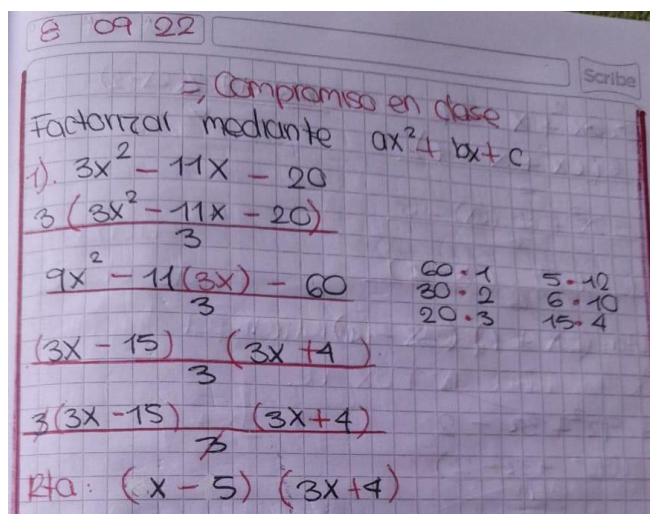 8 09 22
Scribe
=, Compromiso en clase
Factorizar mediante ax² + bx + c
1). 3x² - 11x - 20
3 (3x² - 11x - 20)
3
9x² - 11(3x) - 60
3
60 · 1 5 · 12
30 · 2 6 · 10
20 · 3 15 · 4
(3x - 15) (3x + 4)
3
3(3x - 15) (3x + 4)
3
Rta: (x - 5) (3x + 4)